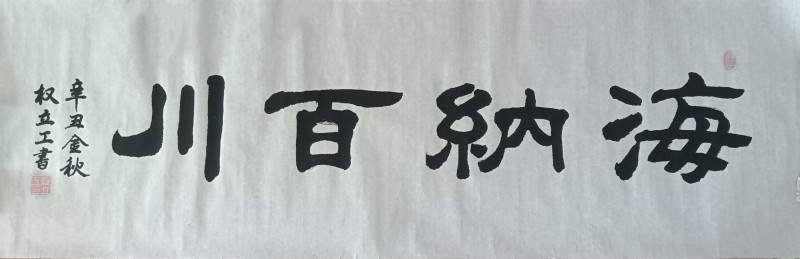 海納百川
辛丑金秋
权立工書